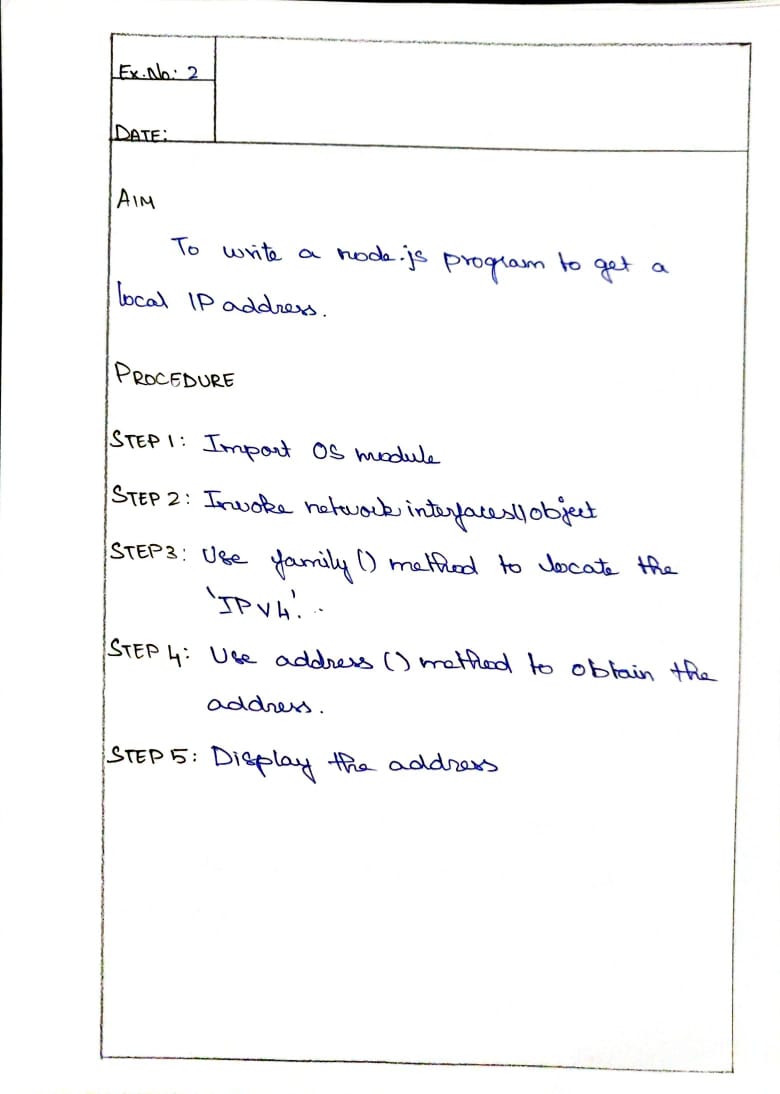 Ex.No: 2
DATE:
AIM
To write a node.js program to get a
local IP address.
PROCEDURE
STEP 1: Import OS module
STEP 2: Invoke network interfaces() object
STEP3: Use family() method to locate the
'IPV4'.
STEP 4: Use address () method to obtain the
address.
STEP 5: Display the address